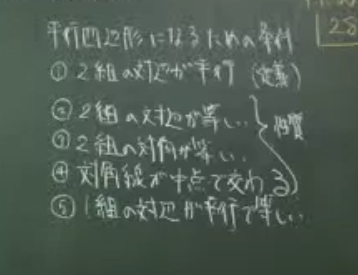 平行四辺形になるための条件
① 2組の対辺が平行 (定義)
② 2組の対辺が等しい
③ 2組の対角が等しい
④ 対角線が中点で交わる
性質
⑤ 1組の対辺が平行で等しい
28